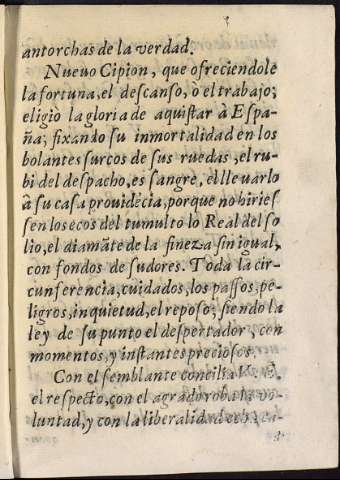 antorchas de la verdad.
Nuevo Cipion, que ofreciendole
la fortuna, el descanso, ò el trabajo;
eligiò la gloria de aquistar à Espa-
ña; fixando su inmortalidad en los
bolantes surcos de sus ruedas, el ru-
bi del despacho, es sangre, el lle uarlo
à su casa prouidẽcia, porque no hiries
sen los ecos del tumulto lo Real del so
lio, el diamãte de la fineza sin igual,
con fondos de sudores. Toda la cir-
cunferencia, cuidados, los passos, pe-
ligros, inquietud, el reposo; siendo la
ley de su punto el despertador, con
momentos, y instantes preciosos.
Con el semblante concilia V.
el respecto, con el agrado roba la vo-
luntad, y con la liberalidad